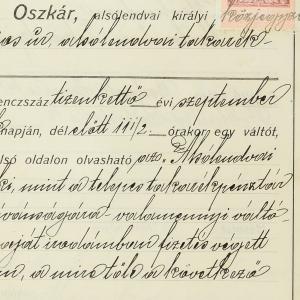 Oszkár, alsólendvai királyi közjegyző
úr, a alsólendvai takarék-
enczszáz tizenkettő évi szeptember
napján, dél előtt 11 1/2 órakor egy váltót,
lsó oldalon olvasható prot. Alsólendvai
ki, mint a telepes takarékpénztár
ívánságára valamennyi váltó-
irodámban fizetés végett
a mire tőle a következő